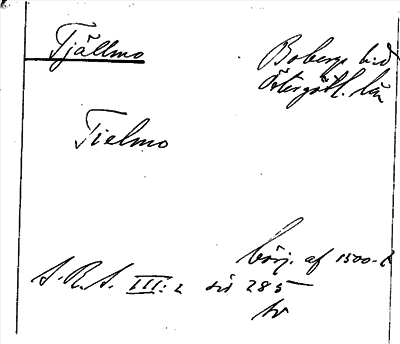 Tjällmo
Bobergs h:d
Östergötl. län
Tielmo
börj. af 1500-t
S.R.S. III:2 sid 285
sv